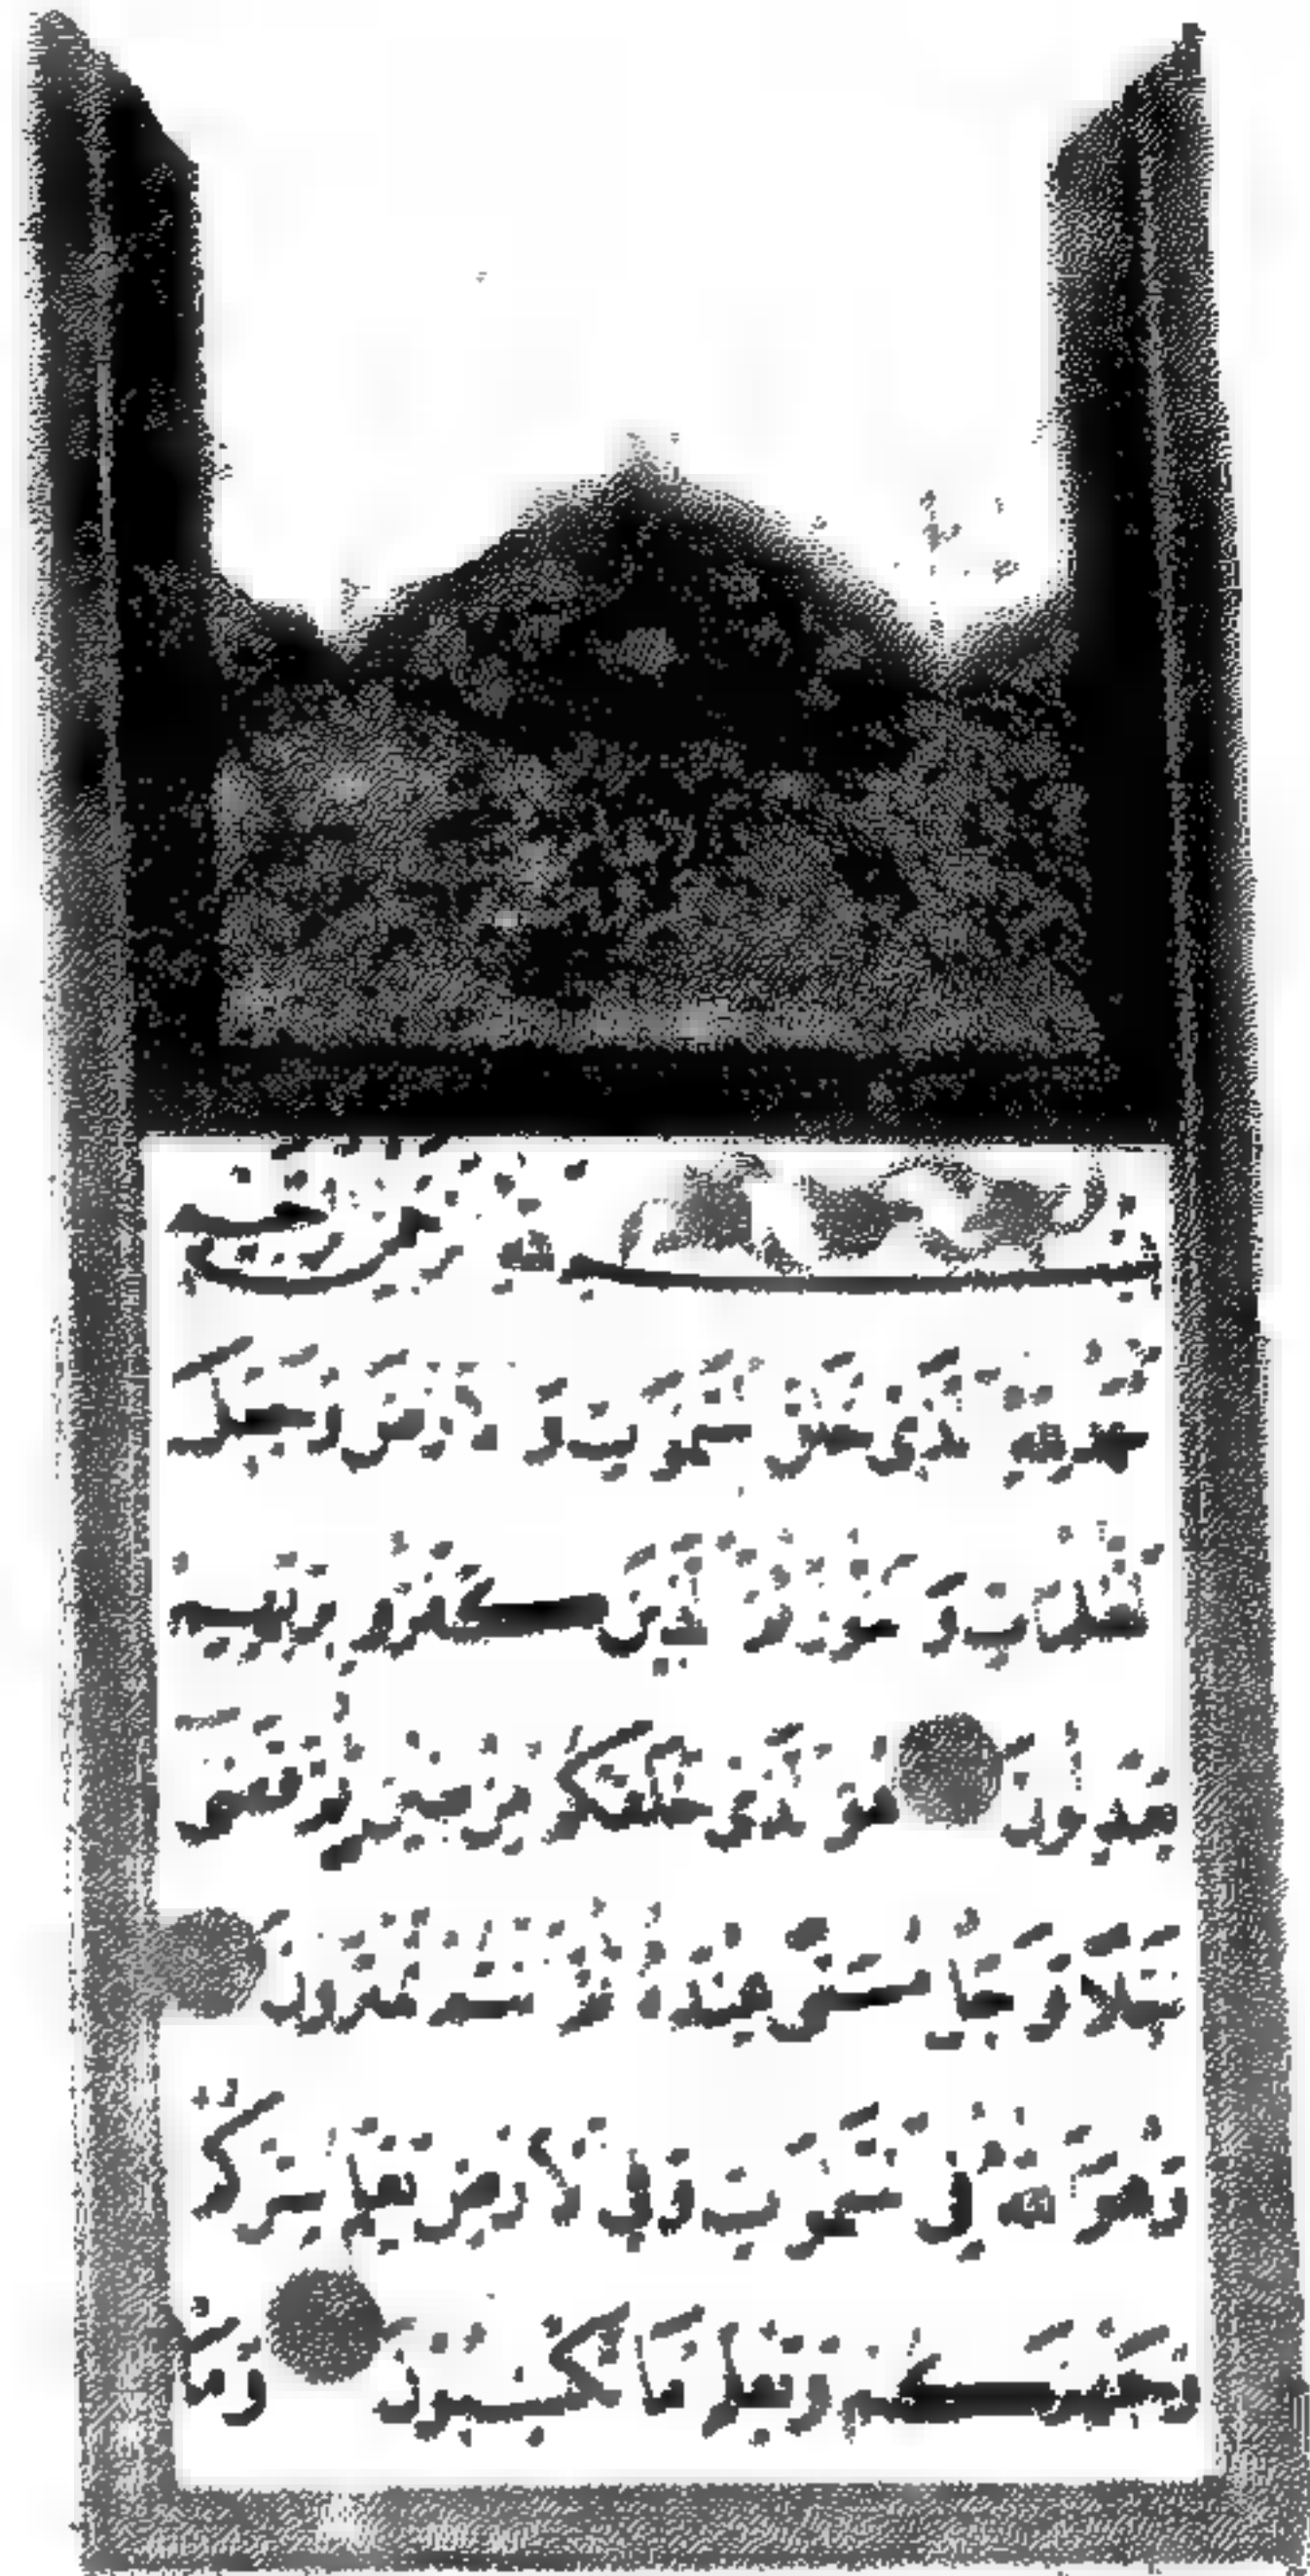 بِسْمِ اللَّهِ الرَّحْمَنِ الرَّحِيمِ
الْحَمْدُ لِلَّهِ الَّذِي خَلَقَ السَّمَوَاتِ وَالْأَرْضَ وَجَعَلَ
الظُّلُمَاتِ وَالنُّورَ ثُمَّ الَّذِينَ كَفَرُوا بِرَبِّهِمْ
يَعْدِلُونَ هُوَ الَّذِي خَلَقَكُمْ مِنْ طِينٍ ثُمَّ قَضَى
أَجَلًا وَأَجَلٌ مُسَمًّى عِنْدَهُ ثُمَّ أَنْتُمْ تَمْتَرُونَ
وَهُوَ اللَّهُ فِي السَّمَوَاتِ وَفِي الْأَرْضِ يَعْلَمُ سِرَّكُمْ
وَجَهْرَكُمْ وَيَعْلَمُ مَا تَكْسِبُونَ وَمَا